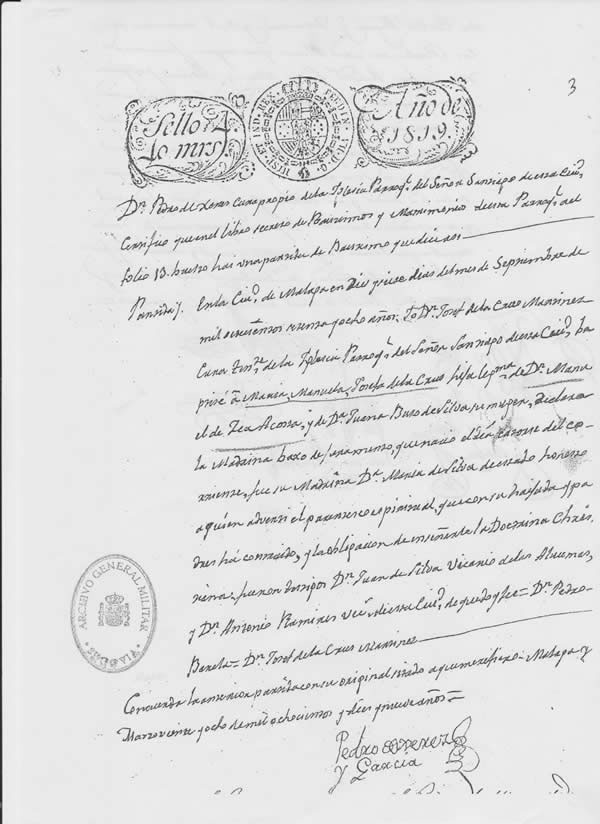 3
Sello 4º
40 mrs.
HISP. ET IND. REX FERDIN. VII. D. G.
Año de
1819.
Dn. Pedro de Xerez Cura propio de la Iglesia Parroql. del Señor Santiago de esta Ciud.
Certifico que en el libro secreto de Bautismos y Matrimonio de esta Parroql. del
folio 13 hai una partida de Bautismo que dice asi
Partida}. En la Ciud. de Malaga en Diez y siete dias del mes de Septiembre de
mil setecientos y ocho años, Yo Dn. Josef de la Cruz Martinez
Cura de la Iglesia Parroql. del Señor Santiago de esta Ciud. ba
pticé á Maria, Manuela, Josefa de la Cruz hija legma. de Dn. Manu
el de Zea Acosta, y de Da. Juana Buzo de Silva su muger, declaro
la Madrina baxo de juramento, que nacio el dia catorce del co
rriente, fue su Madrina Da. Maria de Silva de estado honesto
a quien adverti el parentesco espiritual, que con su haijada y pa
dres ha contraido, y la obligacion de enseñarle la Doctrina Chris
tiana, fueron testigos Dn. Juan de Silva Vicario de las
y Dn. Antonio Ramires de esta Ciud. de que doy fee = Dn. Pedro
= Dn. Josef de la Cruz Martinez
Concuerda la anterior partida con su original a que me refiero. Malaga y
Marzo veinte y ocho de mil ochocientos y diez y nueve años =
Pedro Xerez
y Garcia
ARCHIVO GENERAL MILITAR